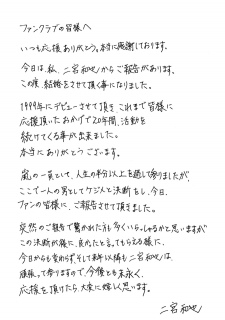 ファンクラブの皆様へ
いつも応援ありがとう。本当に感謝しております。
今日は、私、二宮和也からご報告があります。
この度 結婚をさせて頂く事になりました。
1999年にデビューさせて頂き これまで皆様に
応援頂いたおかげで20年間、活動を
続けてくる事が出来ました。
本当にありがとうございます。
嵐の一員として、人生の半分以上を過して参りましたが、
ここで一人の男としてケジメと決断をし、今日、
ファンの皆様に、ご報告させて頂きました。
突然のご報告で驚かれた方も多くいらっしゃるかと思いますが
この決断が後に、良かったと言ってもらえる様に、
今日からも変わらずそして来年以降も二宮和也は、
頑張って参りますので、今後とも末永く、
応援を頂けたら、大変に嬉しく思います。
二宮和也